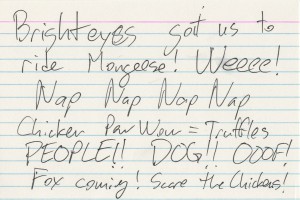 Brighteyes got us to
ride Mongeese! Weeee!
Nap Nap Nap Nap
Chicken Paw Wow = Truffles
PEOPLE!! DOG!! OOOF!
Fox coming! Scare the Chickens!